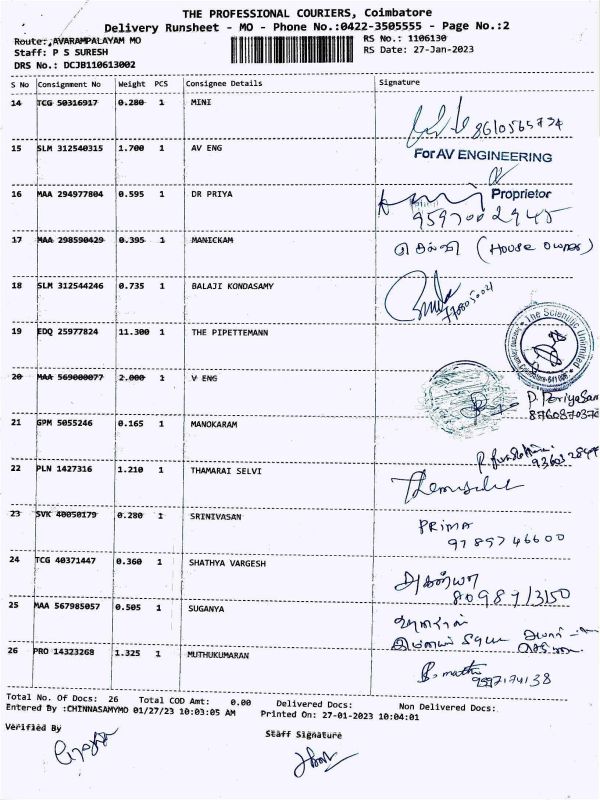 THE PROFESSIONAL COURIERS, Coimbatore
Delivery Runsheet - MO - Phone No.:0422-3505555 - Page No.:2
Route:,AVARAMPALAYAM MO RS No.: 1106130
Staff: P S SURESH RS Date: 27-Jan-2023
DRS No.: DCJB110613002
S No Consignment No Weight PCS Consignee Details Signature
14 TCG 50316917 0.280 1 MINI
8610565774
15 SLM 312540315 1.700 1 AV ENG
For AV ENGINEERING
16 MAA 294977804 0.595 1 DR PRIYA
Proprietor
9597002945
17 MAA 298590429 0.395 1 MANICKAM
(House owner)
18 SLM 312544246 0.735 1 BALAJI KONDASAMY
7708050021
19 EDQ 25977824 11.300 1 THE PIPETTEMANN
The Scientific Unlimited
20 MAA 569000077 2.000 1 V ENG
P. Periyasam
8760870370
21 GPM 5055246 0.165 1 MANOKARAM
22 PLN 1427316 1.210 1 THAMARAI SELVI
23 SVK 40050179 0.280 1 SRINIVASAN
PRIMA
9789746600
24 TCG 40371447 0.360 1 SHATHYA VARGESH
8098713150
25 MAA 567985057 0.505 1 SUGANYA
26 PRO 14323268 1.325 1 MUTHUKUMARAN
Total No. Of Docs: 26 Total COD Amt: 0.00 Delivered Docs: Non Delivered Docs:
Entered By :CHINNASAMYMO 01/27/23 10:03:05 AM Printed On: 27-01-2023 10:04:01
Verified By Staff Signature